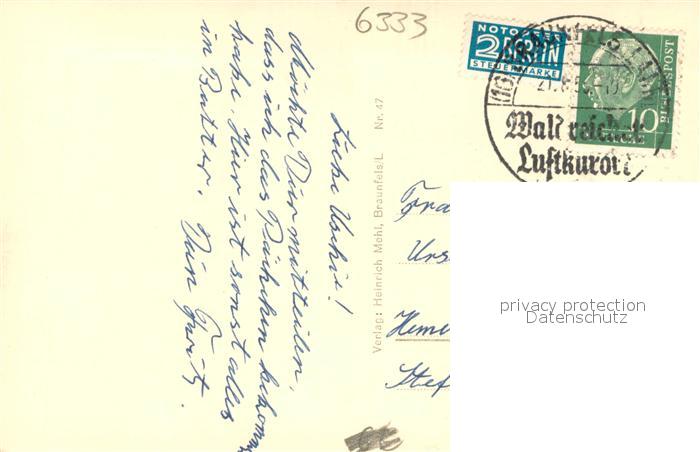 6333
NOTOPFER
2 BERLIN
STEUERMARKE
BRAUNFELS
10
BUNDESPOST
Waldreicher
Luftkurort
Liebe Uschi!
Möchte Dir mitteilen,
dass ich das Päckchen bekommen
habe. Hier ist sonst alles
in Butter. Dein Fritz.
Verlag: Heinrich Mehl, Braunfels/L Nr. 47
Frau
Urs
Heme
Stef
privacy protection
Datenschutz